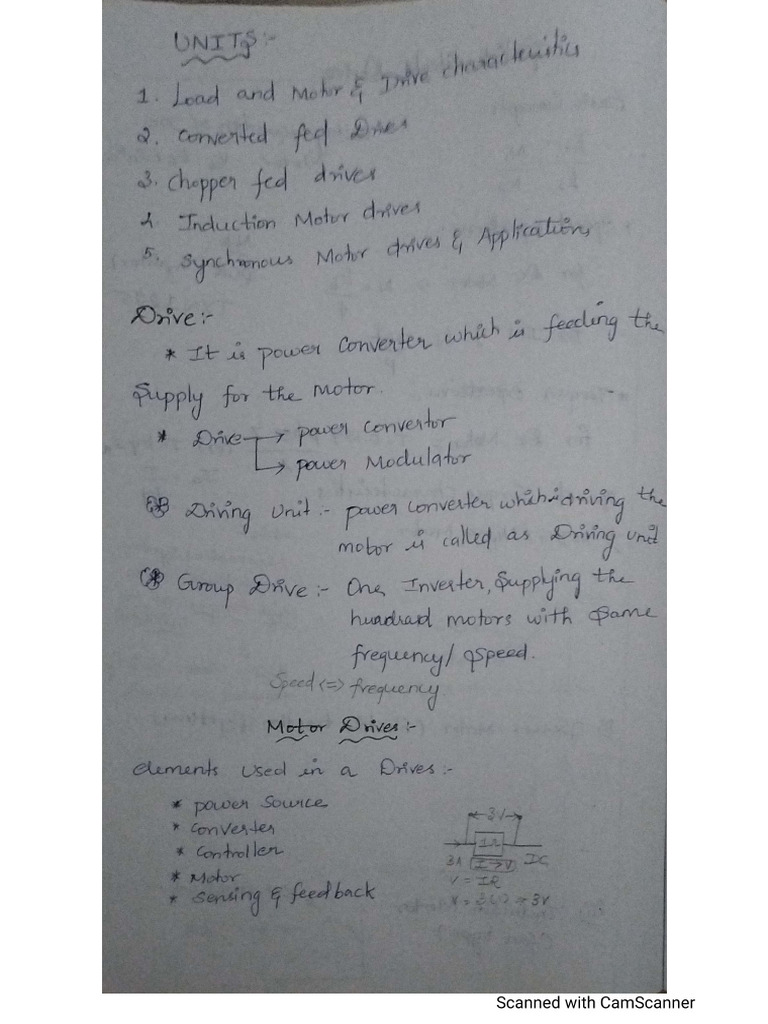 UNITS:-
1. Load and Motor & Drive characteristics
2. Converted fed Drives
3. Chopper fed drives
4. Induction Motor drives
5. Synchronous Motor drives & Applications
Drive:-
* It is power converter which is feeding the
supply for the motor.
* Drive → power convertor
→ power Modulator
Driving Unit :- power converter which is driving the
motor is called as Driving unit
Group Drive :- One Inverter, supplying the
hundrad motors with same
frequency/ speed.
Speed <=> frequency
Motor Drives :-
elements used in a Drives :-
* power source
* converter
* controller
* Motor
* sensing & feedback
3V
1Ω
3A I→V
V = IR
= 3V
Scanned with CamScanner